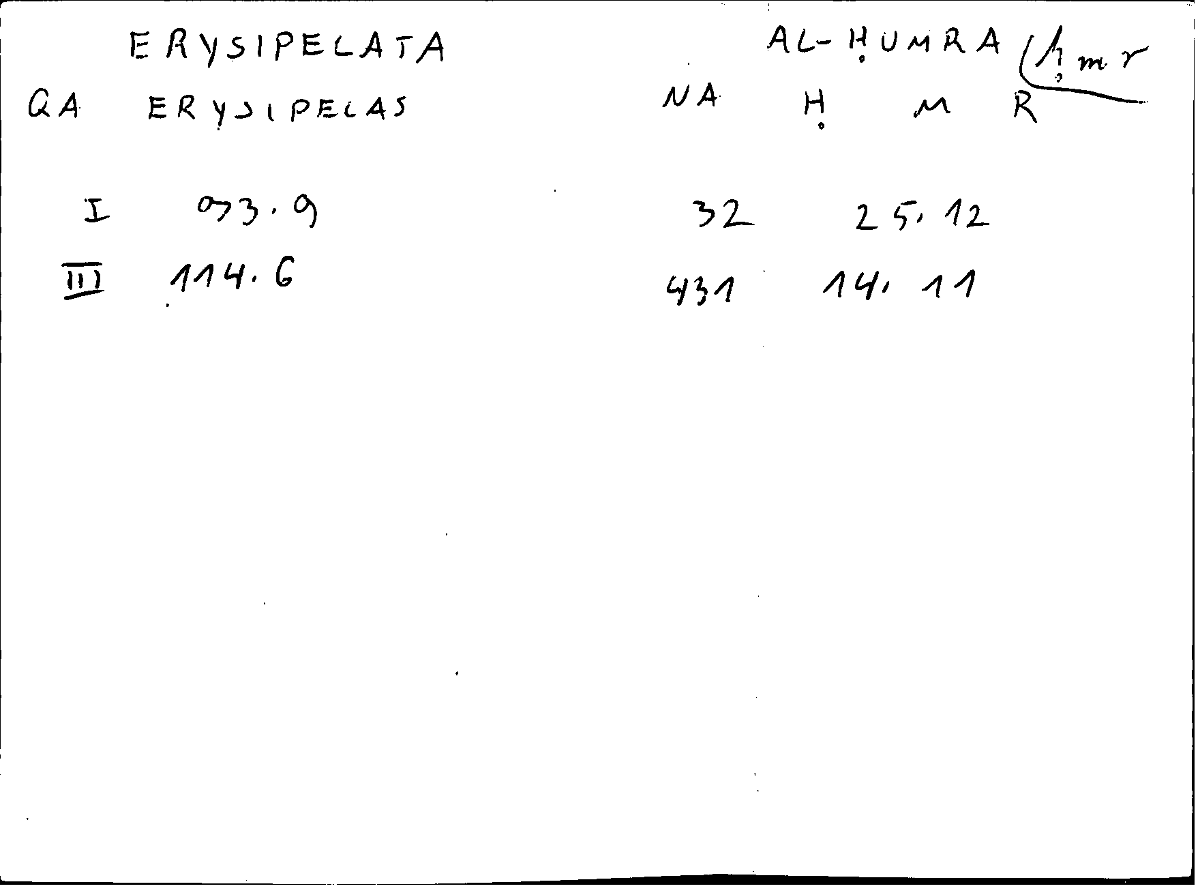 ERYSIPELATA AL-ḤUMRA (ḥmr
QA ERYSIPELAS NA Ḥ M R
I 073.9 32 25.12
III 114.6 431 14.11